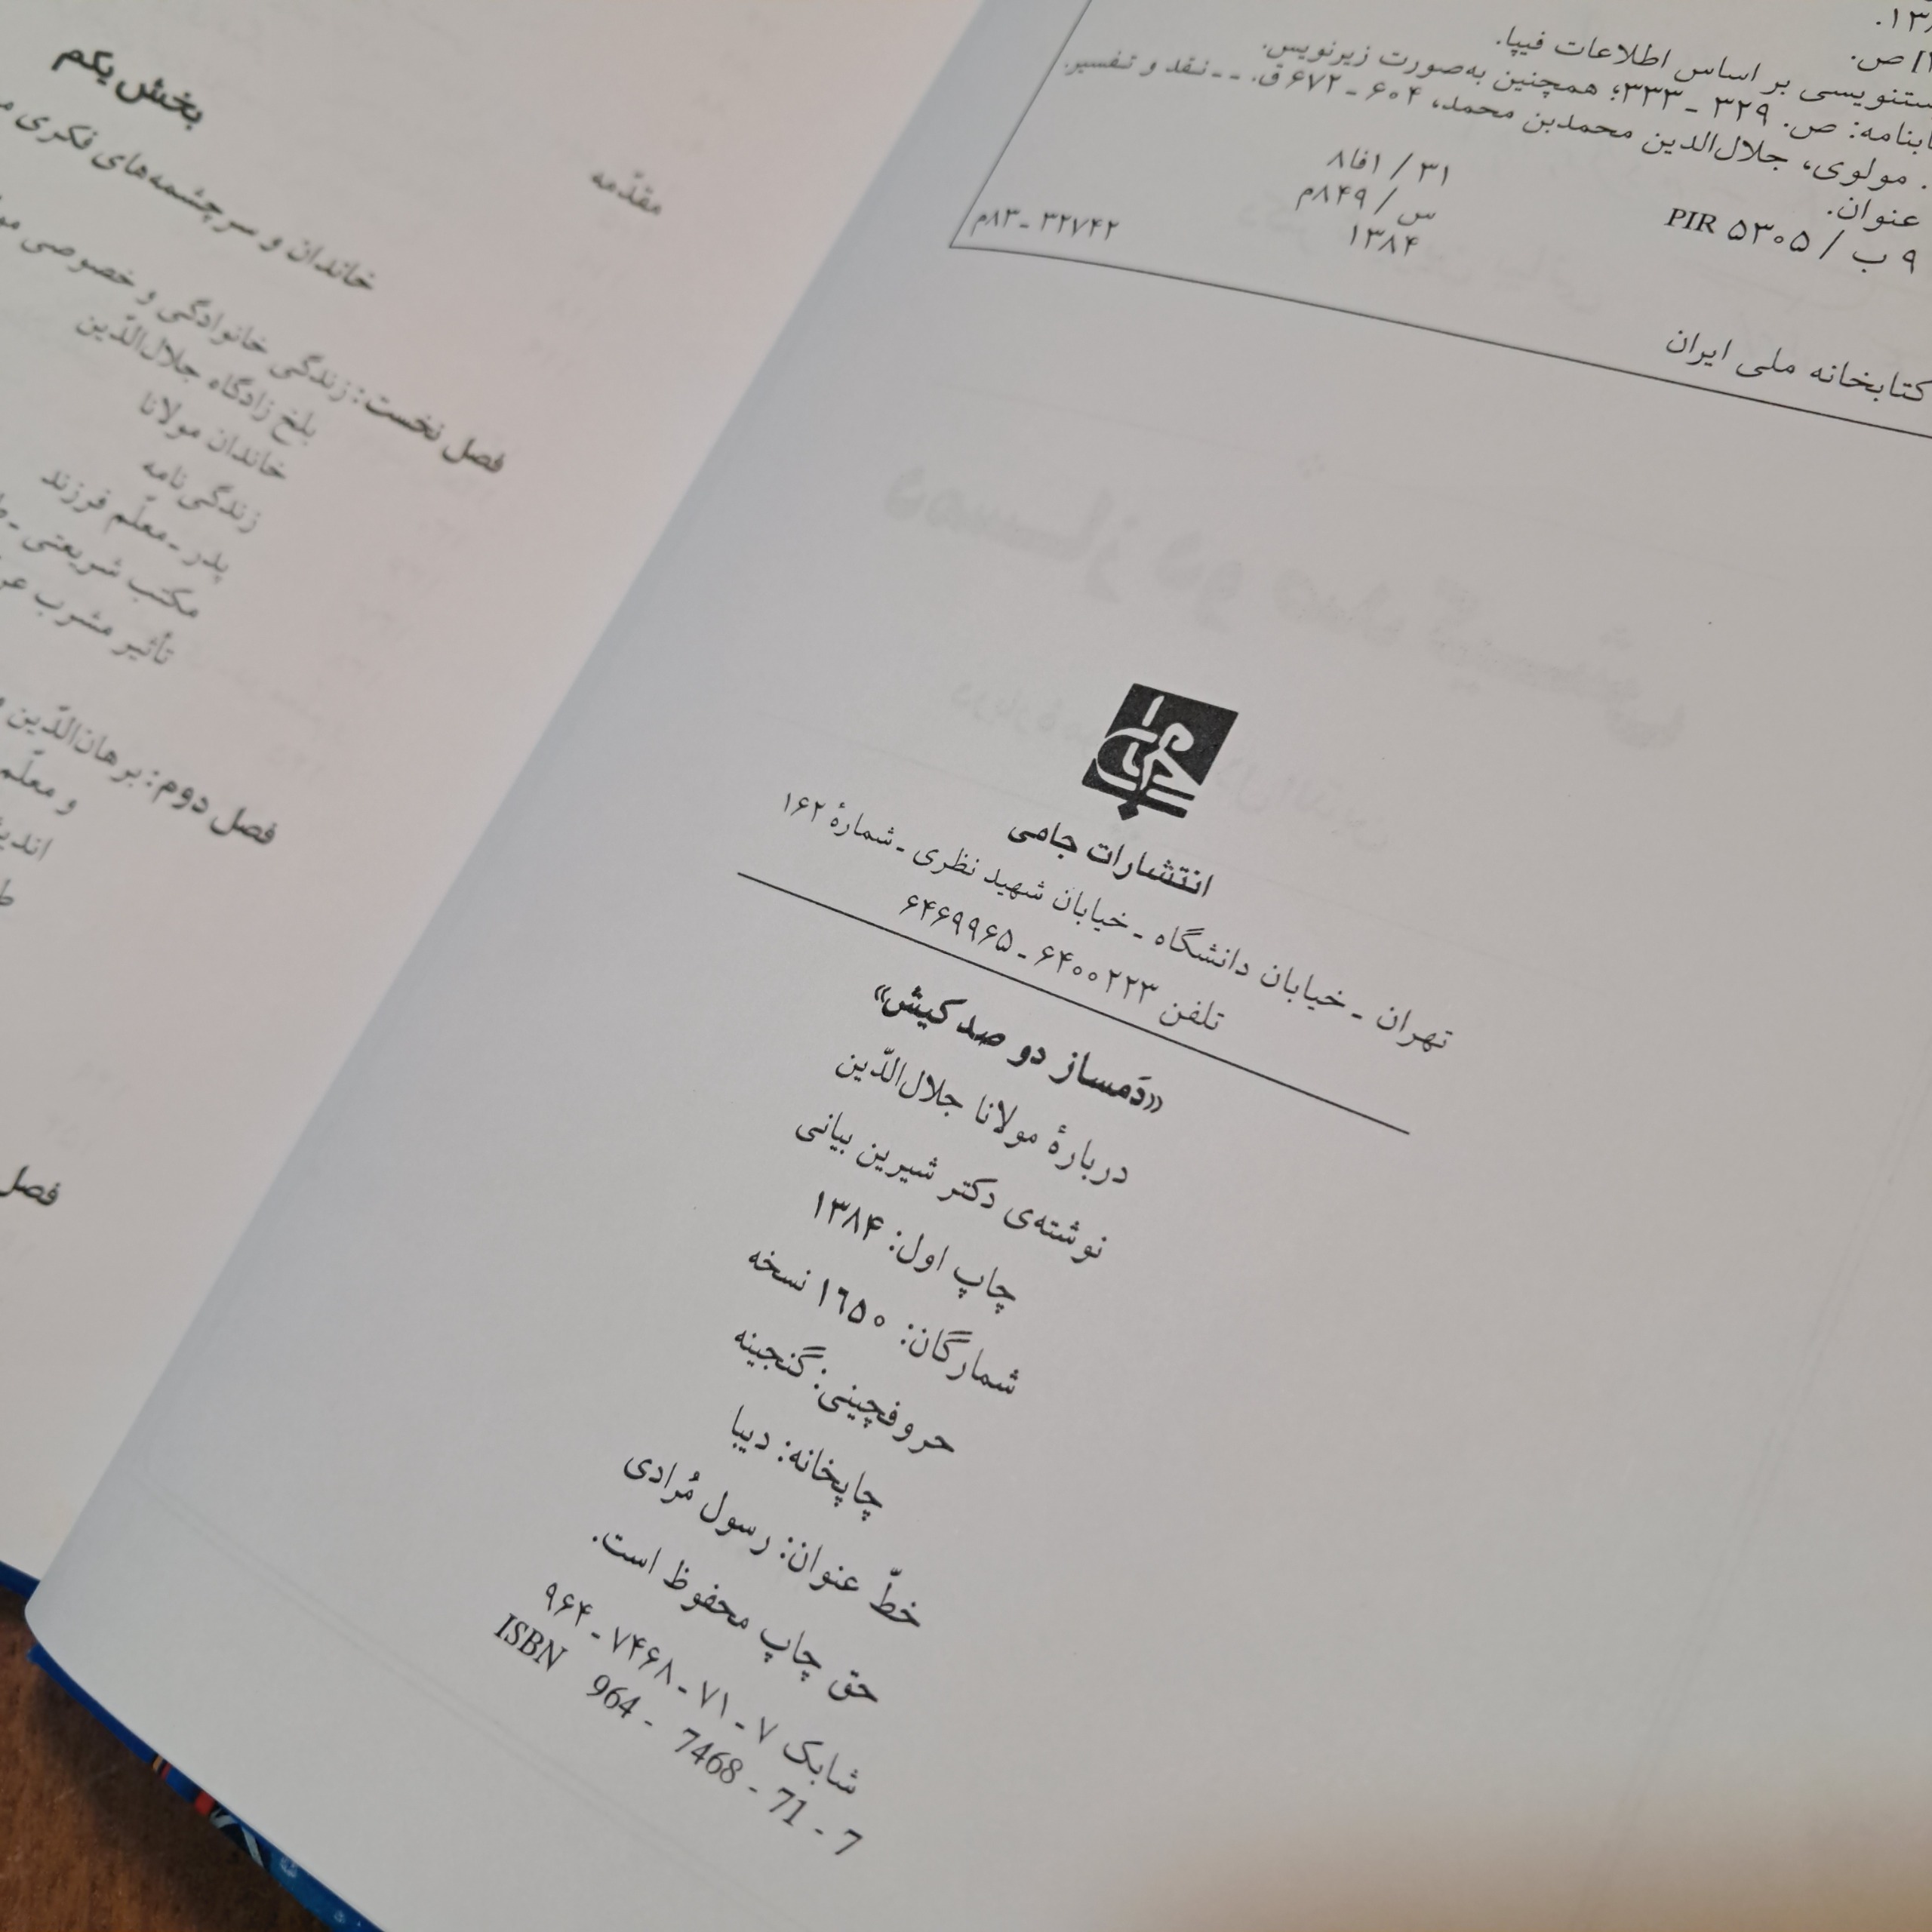 ۱۳۸
ص.
بر اساس اطلاعات فیپا.
ص. ۳۲۹ ـ ۳۳۳؛ همچنین به‌صورت زیرنویس.
. مولوی، جلال‌الدین محمدبن محمد، ۶۰۴ ـ ۶۷۲ق. ـ ـ نقد و تفسیر.
عنوان.
۳۱ / ۸فا۱
۹ ب / ۵۳۰۵ PIR
س / ۸۴۹م
۱۳۸۴
کتابخانه ملی ایران
۳۲۷۴۲ ـ ۸۳م
جامی
انتشارات جامی
تهران ـ خیابان دانشگاه ـ خیابان شهید نظری ـ شمارهٔ ۱۶۲
تلفن ۶۴۰۰۲۲۳ ـ ۶۴۶۹۹۶۵
«دَمساز دو صد کیش»
دربارهٔ مولانا جلال‌الدّین
نوشته‌ی دکتر شیرین بیانی
چاپ اول: ۱۳۸۴
شمارگان: ۱۶۵۰ نسخه
حروفچینی: گنجینه
چاپخانه: دیبا
خطّ عنوان: رسول مُرادی
حق چاپ محفوظ است.
شابک ۷ ـ ۷۱ ـ ۷۴۶۸ ـ ۹۶۴
ISBN 964 - 7468 - 71 - 7
مقدّمه
بخش یکم
خاندان و سرچشمه‌های فکری
فصل نخست: زندگی خانوادگی و خصوصی
بلخ زادگاه جلال‌الدّین
خاندان مولانا
زندگی‌نامه
پدر ـ معلّم فرزند
مکتب شریعتی ـ
تأثیر مشرب
فصل دوم: برهان‌الدّین
و معلّم
فصل